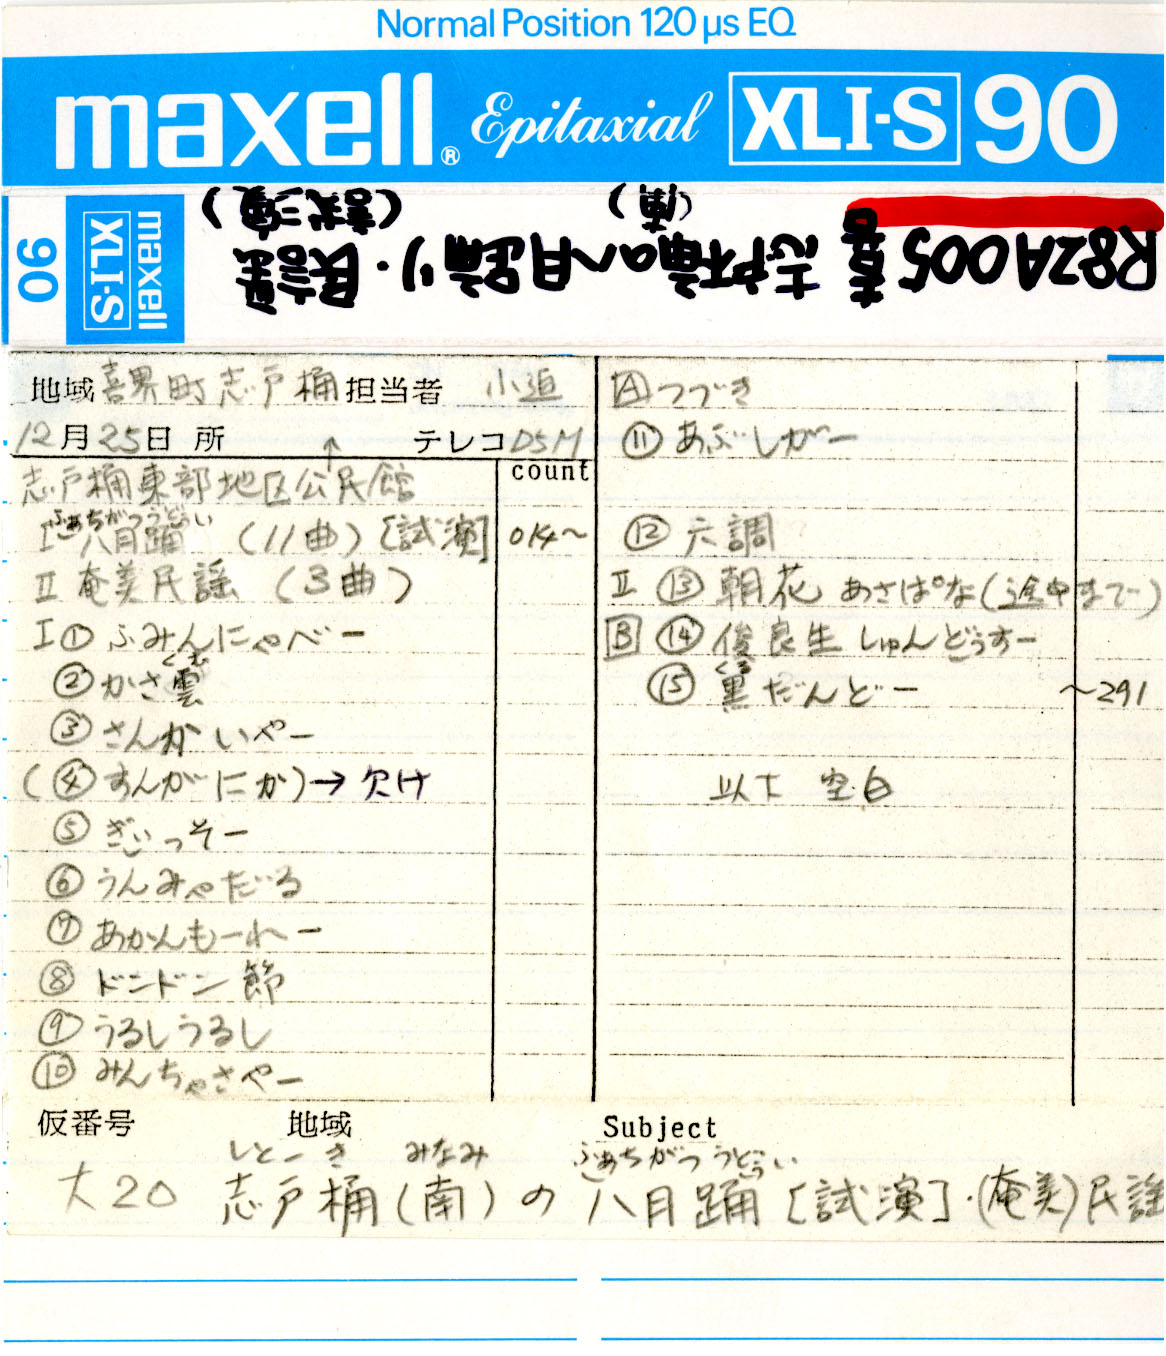 Normal Position 120 µs EQ
maxell® Epitaxial XLI-S 90
R82A005 喜 志戸桶の八月踊り・民謡
(南) (試演)
maxell XLI-S 90
地域 喜界町志戸桶 担当者 小迫
12月25日 所 ↑ テレコ D5M
count
志戸桶東部地区公民館
ふぁちがつうどぅい
I 八月踊 (11曲) [試演] 014〜
II 奄美民謡 (3曲)
I ① ふみんにゃべー
くむ
② かさ雲
③ さんかいやー
(④ すんがにか)→ 欠け
⑤ ぎぃっそー
⑥ うんみゃだる
⑦ あかんもーれー
⑧ ドンドン節
⑨ うるしうるし
⑩ みんちゃさやー
A つづき
⑪ あぶしがー
⑫ 六調
II ⑬ 朝花 あさぱな(途中まで)
B ⑭ 俊良主 しゅんどぅすー
くる
⑮ 黒だんどー 〜291
以下 空白
仮番号 地域 Subject
しとーき みなみ ふぁちがつうどぅい
大20 志戸桶(南)の八月踊[試演]・(奄美)民謡